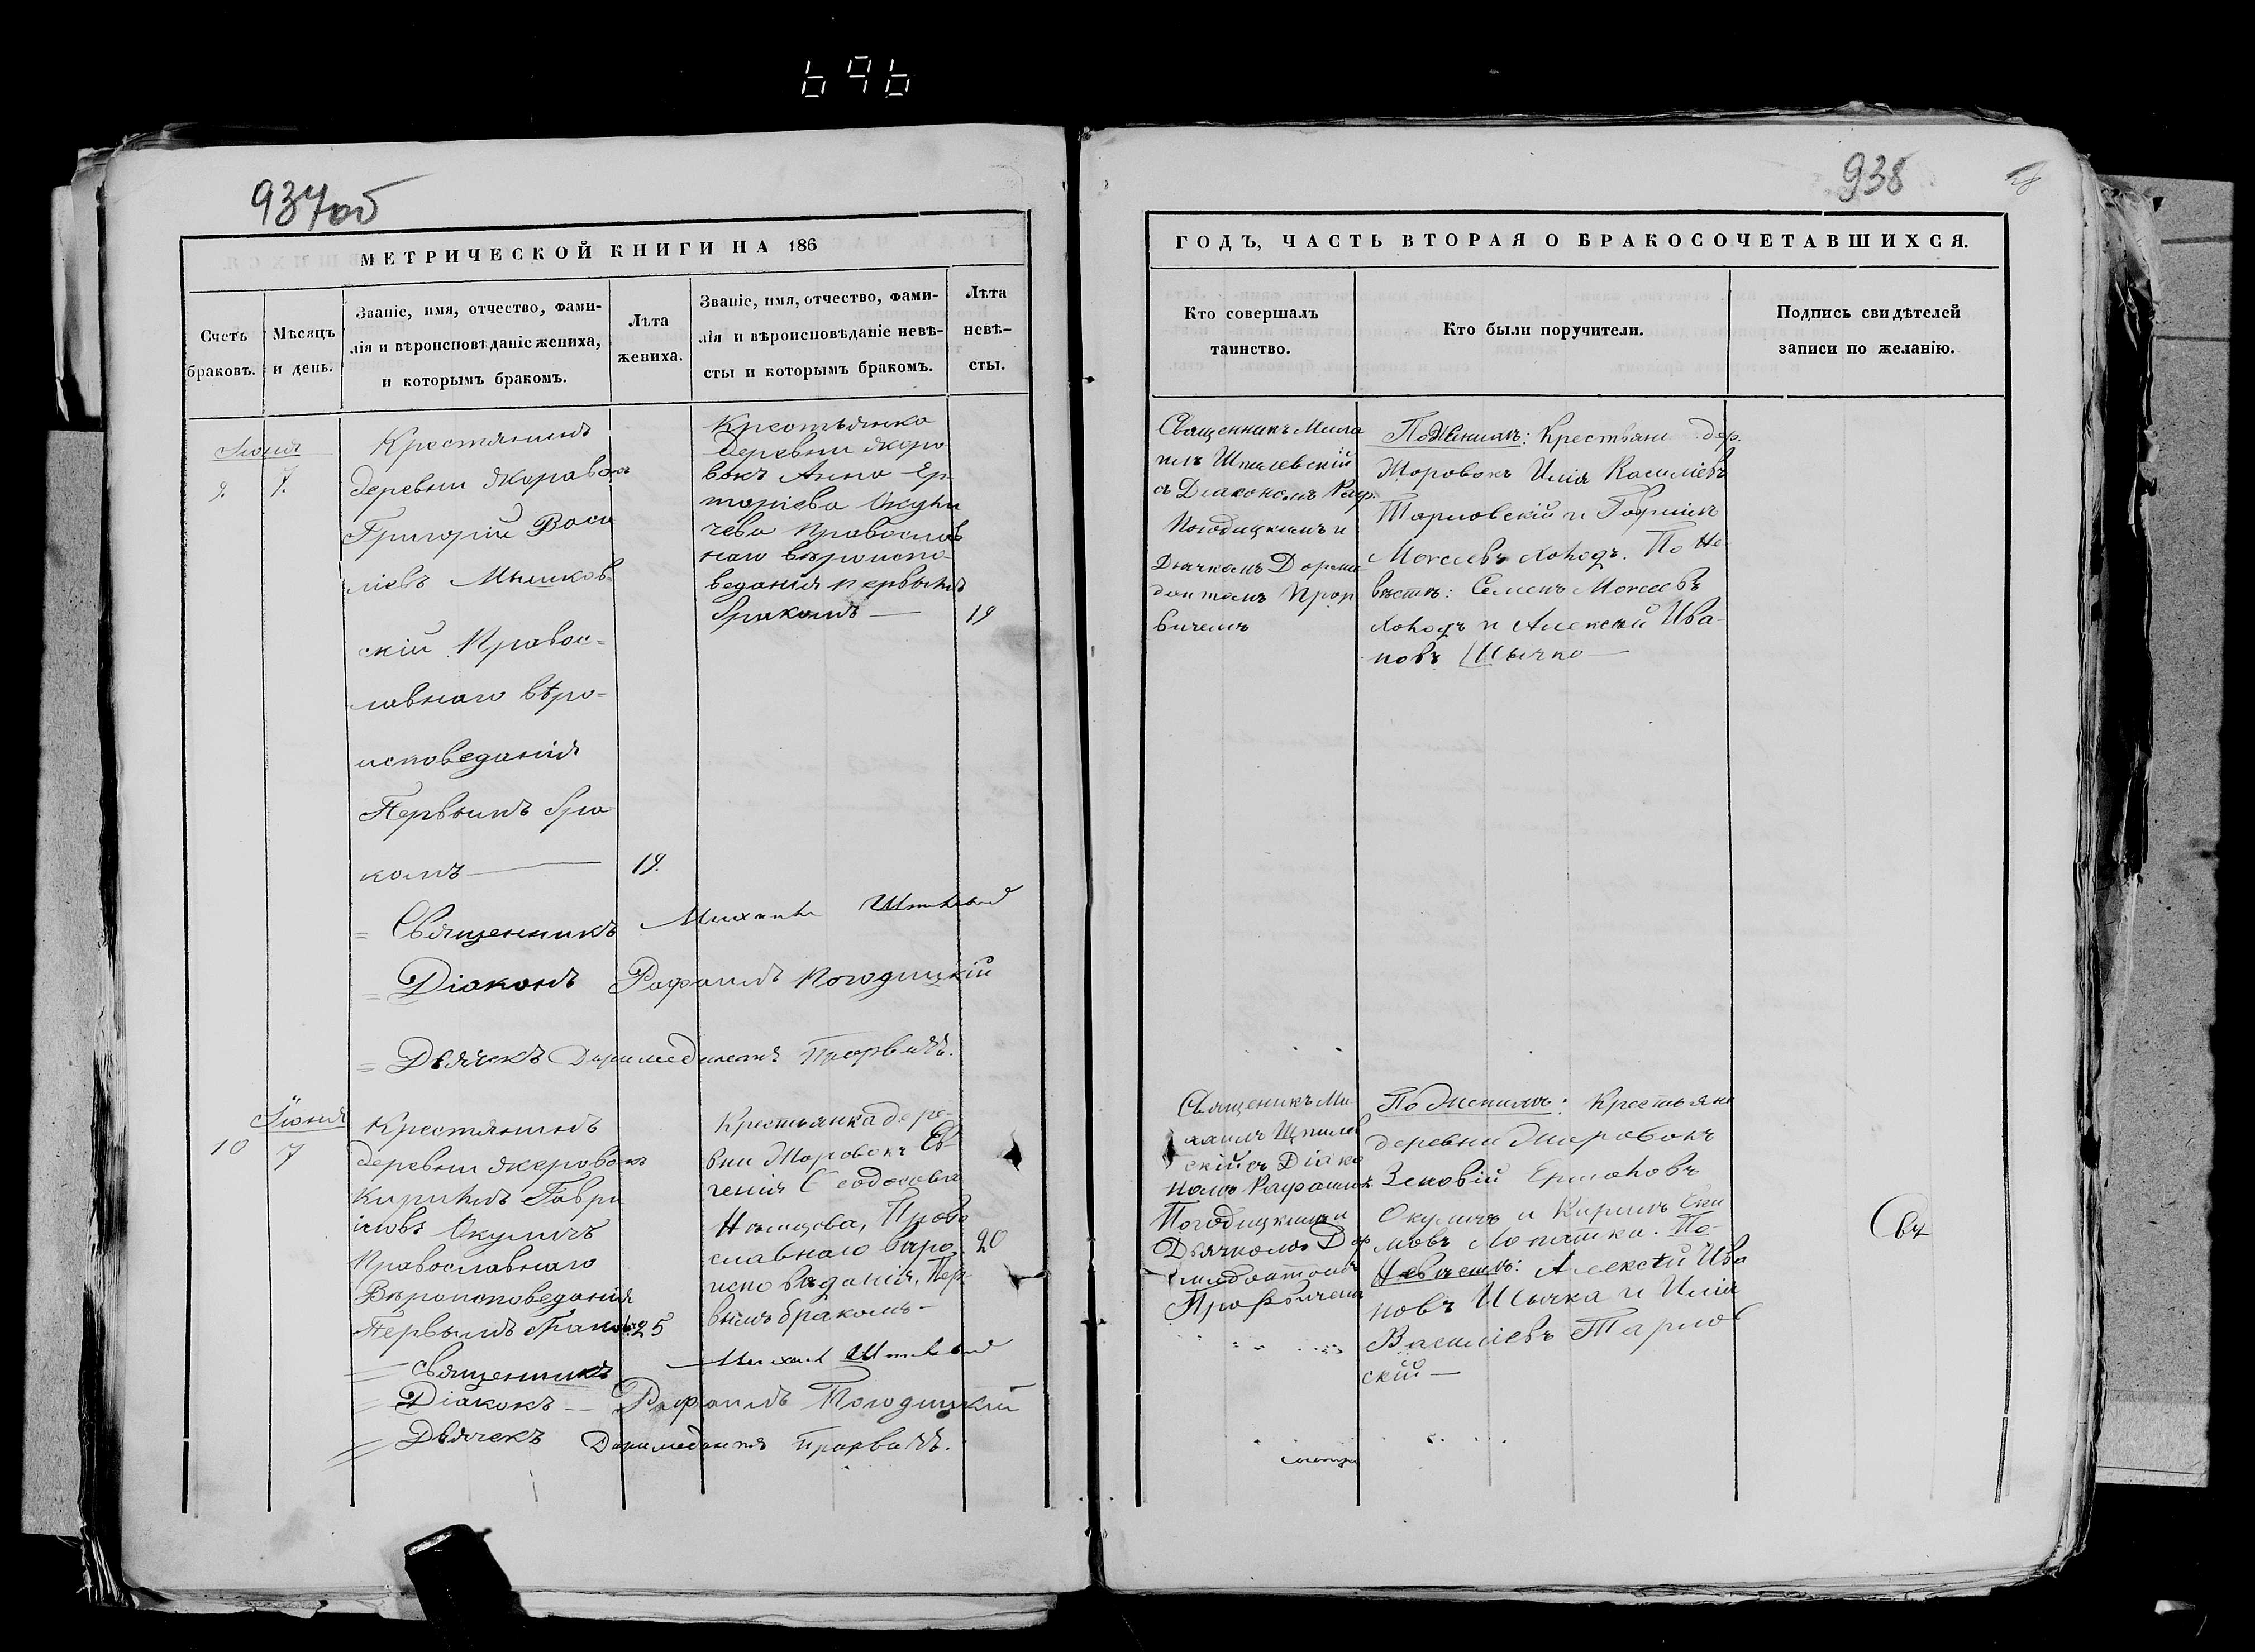 696
937об
МЕТРИЧЕСКОЙ КНИГИ НА 186
Счетъ браковъ.
Мѣсяцъ и день.
Званіе, имя, отчество, фами-
лія и вѣроисповѣданіе жениха,
и которымъ бракомъ.
Лѣта
жениха.
Званіе, имя, отчество, фами-
лія и вѣроисповѣданіе невѣ-
сты и которымъ бракомъ.
Лѣта
невѣ-
сты.
Іюня
9. 7.
Крестянинъ
деревни Жоравокъ
Григорій Васи
ліевъ Мышков
скій Правос=
лавнаго вѣро=
исповеданія
Первымъ бра
комъ —
19.
Крестьянка
деревни Жоро
вокъ Анна Ер
молаева Окули
чева Православ
наго вѣроиспо-
веданія первымъ
бракомъ —
19
= Священникъ Михаилъ
= Діаконъ Рафаилъ Погодицкій
= Дьячекъ Доримедонтъ Прорвичъ.
Іюня
10 7
Крестянинъ
деревни Жеровокъ
Кирилъ Гаври
иловъ Окуличъ
Православнаго
Вѣроисповеданія
Первымъ бракомъ 25
Крестьянка дере-
вни Жоровокъ Ев
генія Феодосова
Нѣмцова, Право
славнаго вѣро
исповѣданія, Пер-
вымъ бракомъ —
20
= Священникъ Михаилъ
= Діаконъ — Рафаилъ Погодицкій
= Дьячекъ Доримедонтъ Прорвичъ.
938
ГОДЪ, ЧАСТЬ ВТОРАЯ О БРАКОСОЧЕТАВШИХСЯ.
Кто совершалъ
таинство.
Кто были поручители.
Подпись свидѣтелей
записи по желанію.
Священникъ Миха
илъ Шпилевскій
съ Діакономъ Раф.
Погодицкимъ и
Дьячкомъ Дориме
донтомъ Прор
вичемъ
По Женихѣ: Крестьяни дер.
Жоровокъ Илія Василіевъ
Тарловскій и Гаріилъ
Моисеевъ Холодъ. По Не
вѣстѣ: Семенъ Моисеевъ
Холодъ и Алексѣй Ива-
новъ —
Священикъ Ми
хаилъ Шпилев
скій съ Діако
номъ Рафаиломъ
Погодицкимъ и
Дьячкомъ Дор
имедонтомъ
Прорвичемъ
По Женихѣ: Крестьяне
деревни Жоровокъ
Зеновій Ермоловъ
Окуличъ и Кирилъ Еки
мовъ Лопатка. По
Невѣстѣ: Алексѣй Ива
новъ и Илія
Василіевъ Тарлов
скій —